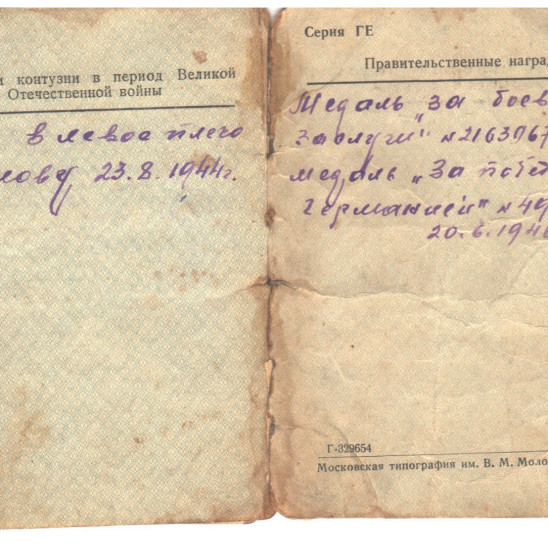 и контузии в период Великой
Отечественной войны
в левое плечо
23.8.1944г.
Серия ГЕ
Правительственные наград
Медаль „за боев
заслуги" №2163967
медаль „За побе
Германией" №49
20.6.194
Г-329654
Московская типография им. В. М. Моло